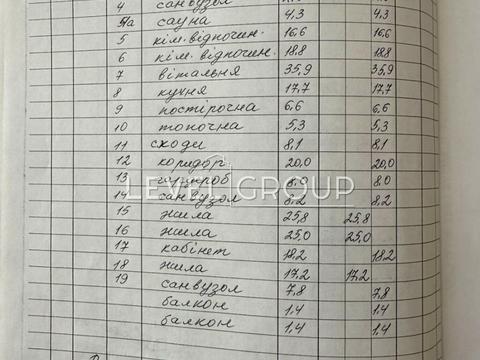 4 санвузол
4а сауна 4,3 4,3
5 кім. відпочин. 16,6 16,6
6 кім. відпочин. 18,8 18,8
7 вітальня 35,9 35,9
8 кухня 17,7 17,7
9 постірочна 6,6 6,6
10 топочна 5,3 5,3
11 сходи 8,1 8,1
12 коридор 20,0 20,0
13 гардероб 8,0 8,0
LEVEL GROUP
14 санвузол 8,2 8,2
15 жила 25,8 25,8
16 жила 25,0 25,0
17 кабінет 18,2 18,2
18 жила 17,2 17,2
19 санвузол 7,8 7,8
балкон 1,4 1,4
балкон 1,4 1,4